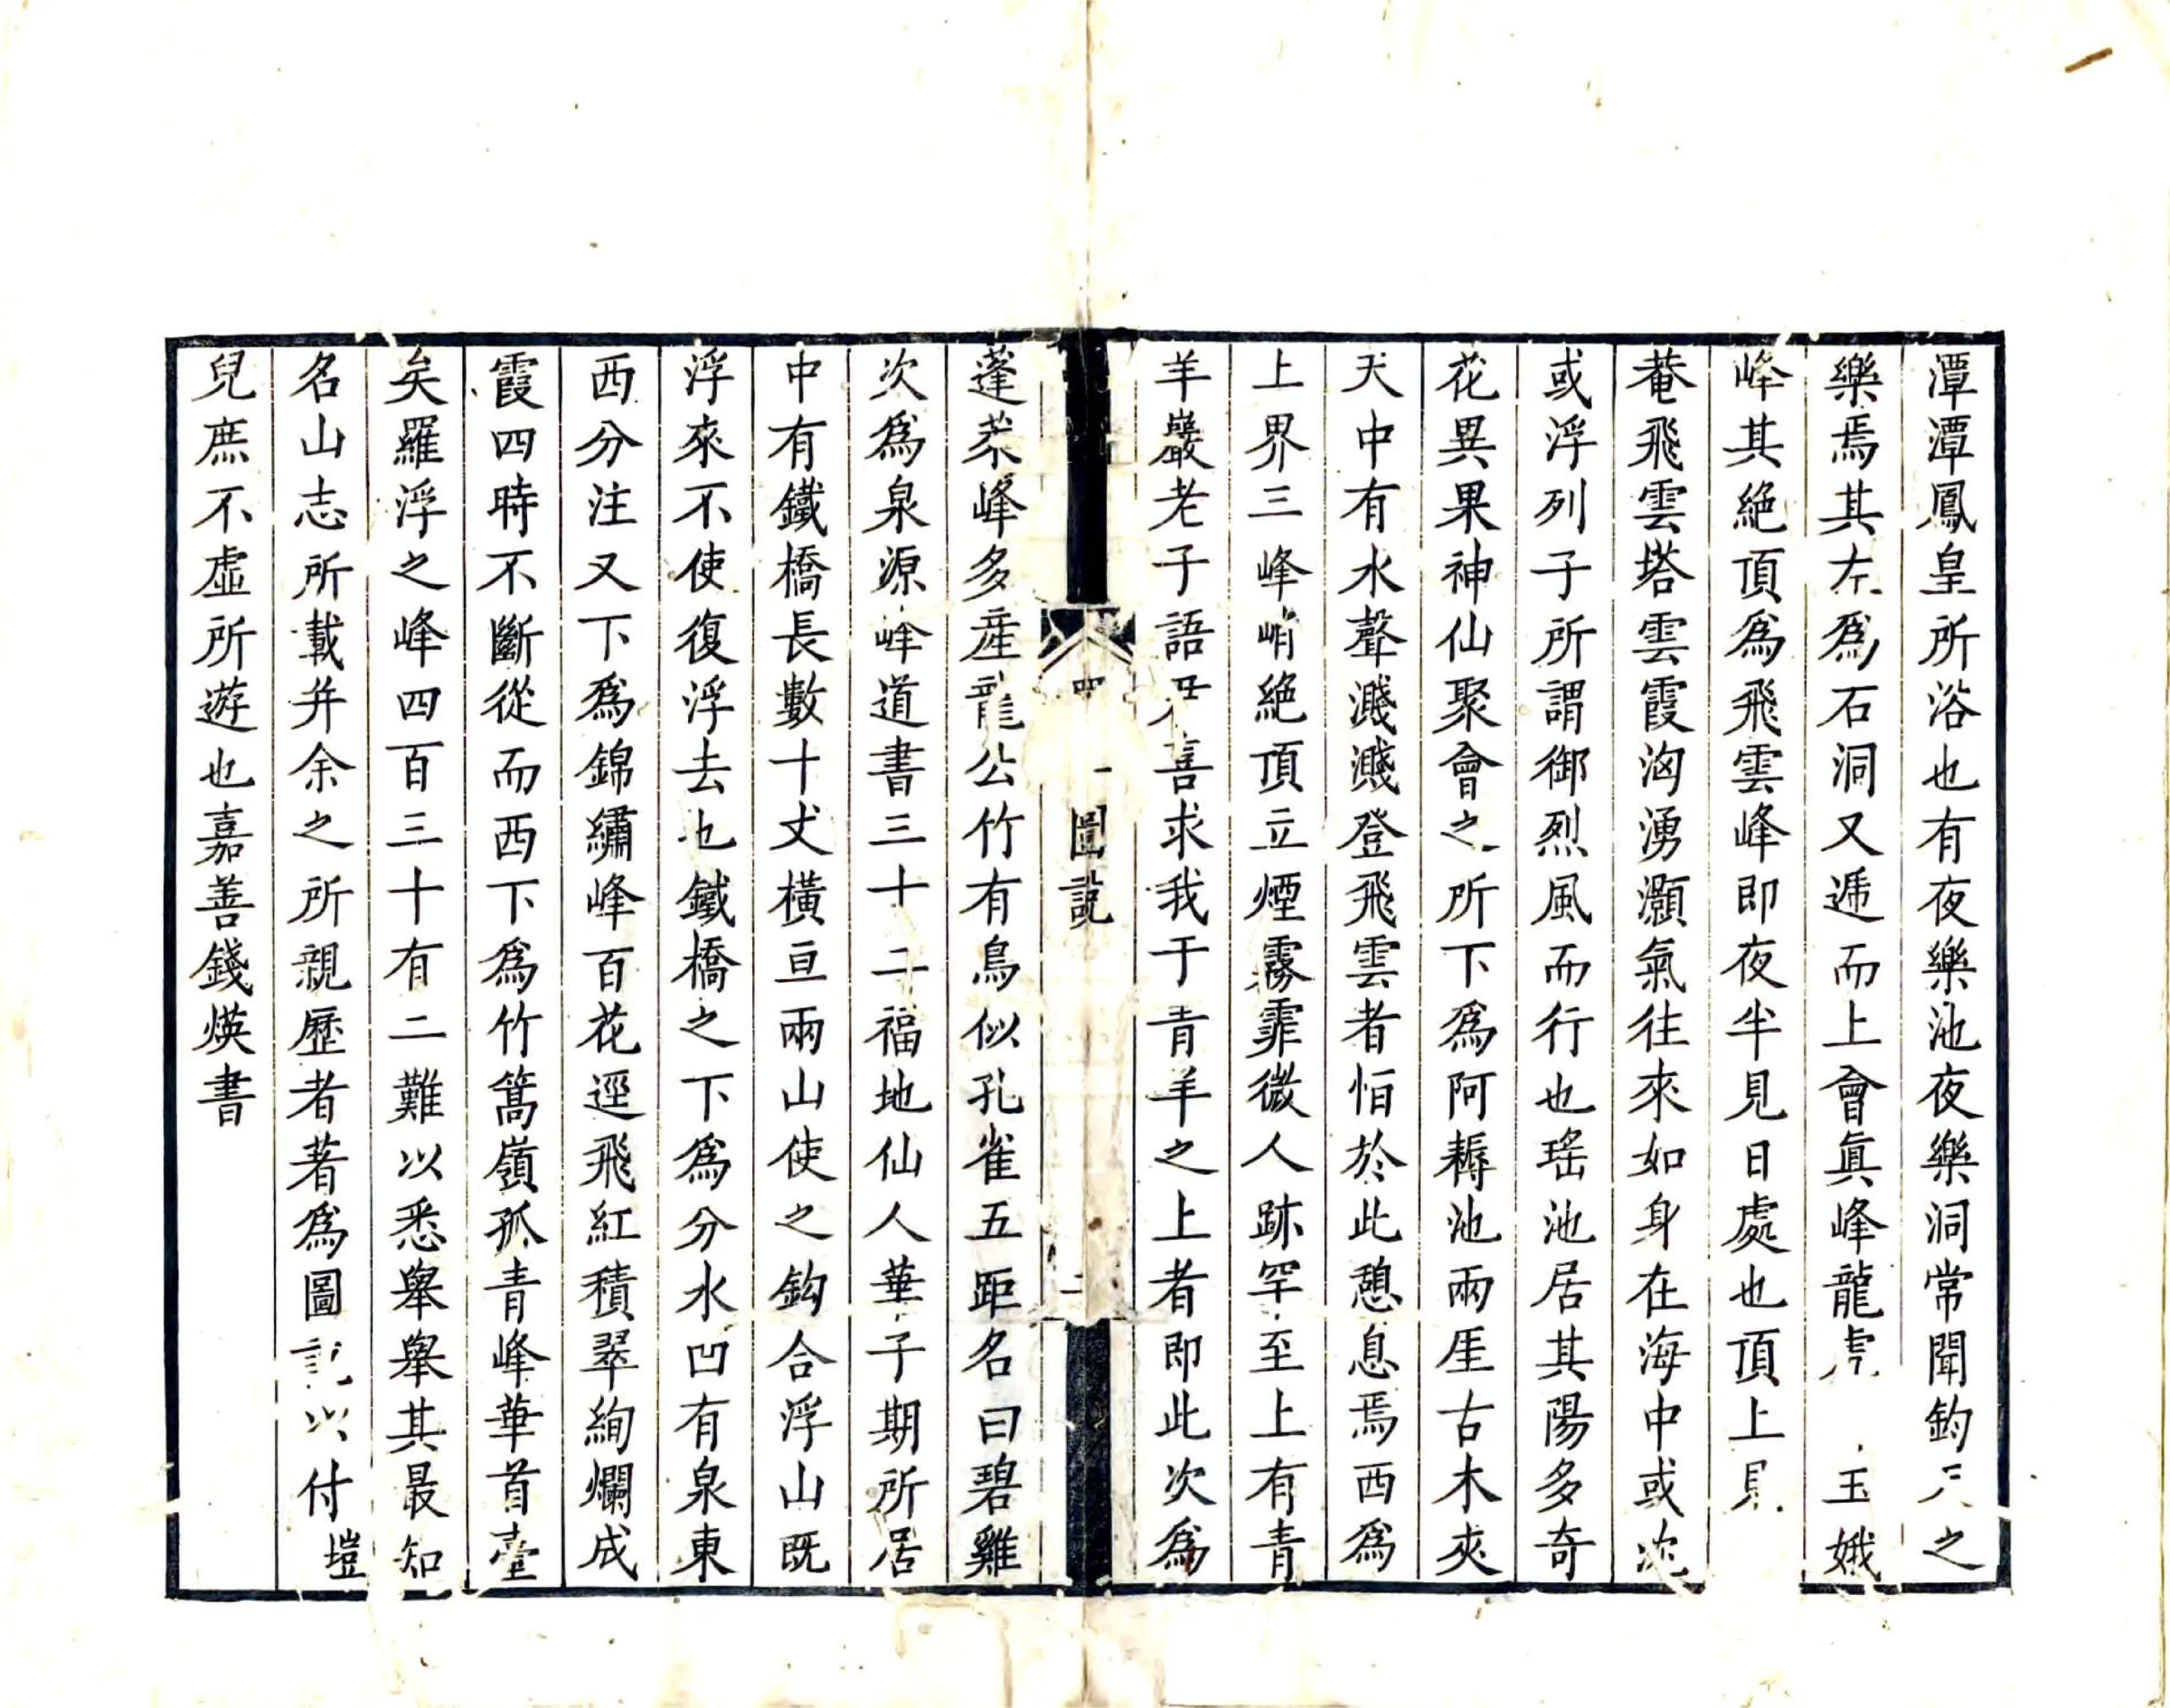 潭潭鳳皇所浴也有夜樂池夜樂洞常聞鈞天之
樂焉其左爲石洞又逓而上會眞峰龍虎玉娥
峰其絶頂爲飛雲峰即夜半見日處也頂上見
菴飛雲塔雲霞洶湧灝氣往來如身在海中或沈
或浮列子所謂御烈風而行也瑤池居其陽多奇
花異果神仙聚會之所下爲阿耨池兩厓古木夾
天中有水聲濺濺登飛雲者怕於此憩息焉西爲
上界三峰峭絶頂立煙霧霏微人跡罕至上有青
羊巖老子語尹喜求我于青羊之上者即此次爲
圖說
二
蓬萊峰多産龍公竹有鳥似孔雀五距名曰碧雞
次爲泉源峰道書三十二福地仙人華子期所居
中有鐵橋長數十丈橫亘兩山使之鈎合浮山旣
浮來不使復浮去也鐵橋之下爲分水凹有泉東
西分注又下爲錦繡峰百花逕飛紅積翠絢爛成
霞四時不斷從而西下爲竹篙嶺孤青峰華首臺
矣羅浮之峰四百三十有二難以悉舉舉其最知
名山志所載并余之所親歷者著爲圖說以付塏
兒庶不虛所遊也嘉善錢煐書